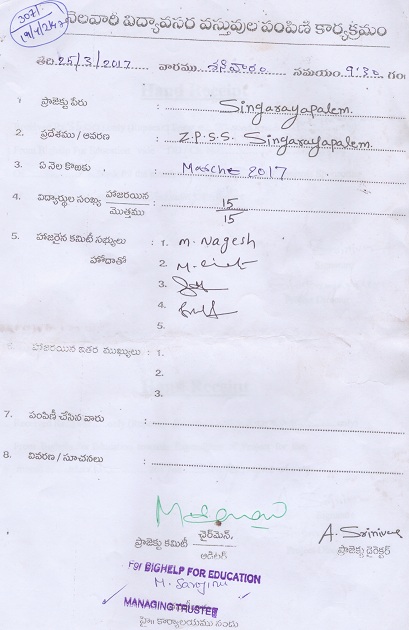 నెలవారి విద్యావసర వస్తువుల పంపిణి కార్యక్రమం
తేది.25/3/2017 వారము శనివారం సమయం 9:30 గం
1. ప్రాజెక్టు పేరు : Singarayapalem.
2. ప్రదేశము / ఆవరణ : Z.P.S.S. Singarayapalem.
3. ఏ నెల కొఱకు : Marche 2017
4. విద్యార్థుల సంఖ్య హాజరయిన : 15
మొత్తము 15
5. హాజరైన కమిటీ సభ్యులు : 1. M. Nagesh
హోదాతో 2.
3.
4.
5.
6. హాజరయిన ఇతర ముఖ్యులు : 1.
2.
3.
7. పంపిణీ చేసిన వారు :
8. వివరణ / సూచనలు :
ప్రాజెక్టు కమిటీ చైర్‌మెన్. A. Srinivas
ఆడిటర్ ప్రాజెక్టు డైరెక్టర్
For BIGHELP FOR EDUCATION
M. Sarojini
MANAGING TRUSTEE
హై: కార్యాలయము నందు